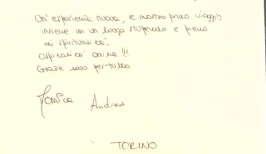 Un'esperienza nuova, e nostro primo viaggio
insieme in un luogo stupendo e pieno
di spiritualità.
Ospitalità ottima !!!
Grazie per tutto
Monica Andrea
TORINO